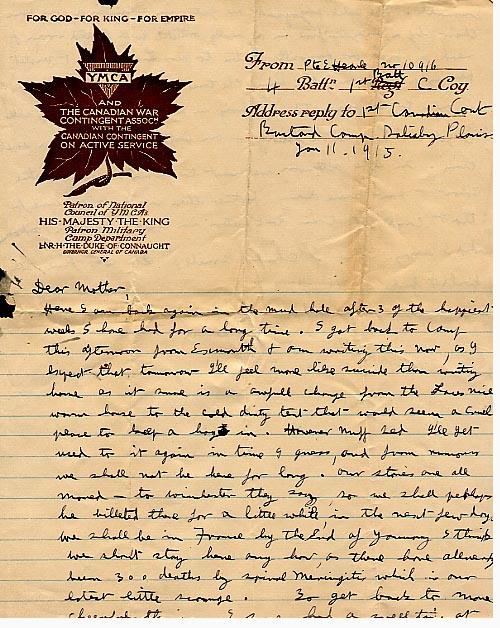 FOR GOD - FOR KING - FOR EMPIRE
YMCA
AND
THE CANADIAN WAR
CONTINGENT ASSOCN
WITH THE
CANADIAN CONTINGENT
ON ACTIVE SERVICE
Patron of National
Council of YMCAs
HIS·MAJESTY·THE·KING
Patron Military
Camp Department
H·R·H·THE·DUKE·OF·CONNAUGHT
GOVERNOR GENERAL OF CANADA
From Pte E no 10916
4 Battn 1st Batt C Coy
Address reply to 1st Canadian Cont
Bustard Camp Salisbury Plains
Jan 11. 1915.
Dear Mother,
Here I am back again in the mud hole after 3 of the happiest
weeks I have had for a long time. I got back to Camp
this afternoon from & am writing this now, as I
expect that tomorrow I'll feel more like suicide than writing
home as it sure is a awfull change from the nice
warm house to the cold dirty tent that would seem a cruel
peace to keep a hog in. However nuff sed I'll get
used to it again in time I guess, and from rumours
we shall not be here for long. Our stores are all
moved - to winchester they say, so we shall perhaps
be billeted there for a little while, in the next few days
we shall be in France by the End of January I think
we shant stay here any how, as there have allready
been 300 deaths by spinal Meningitis which is our
latest little scourge. So get back to more